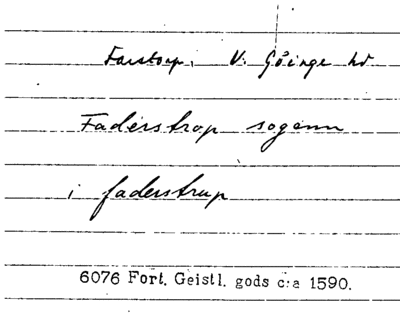 Farstorp. V. Göinge hd
Faderstrop sogenn
i faderstrup
6076 Fort. Geistl. gods c:a 1590.